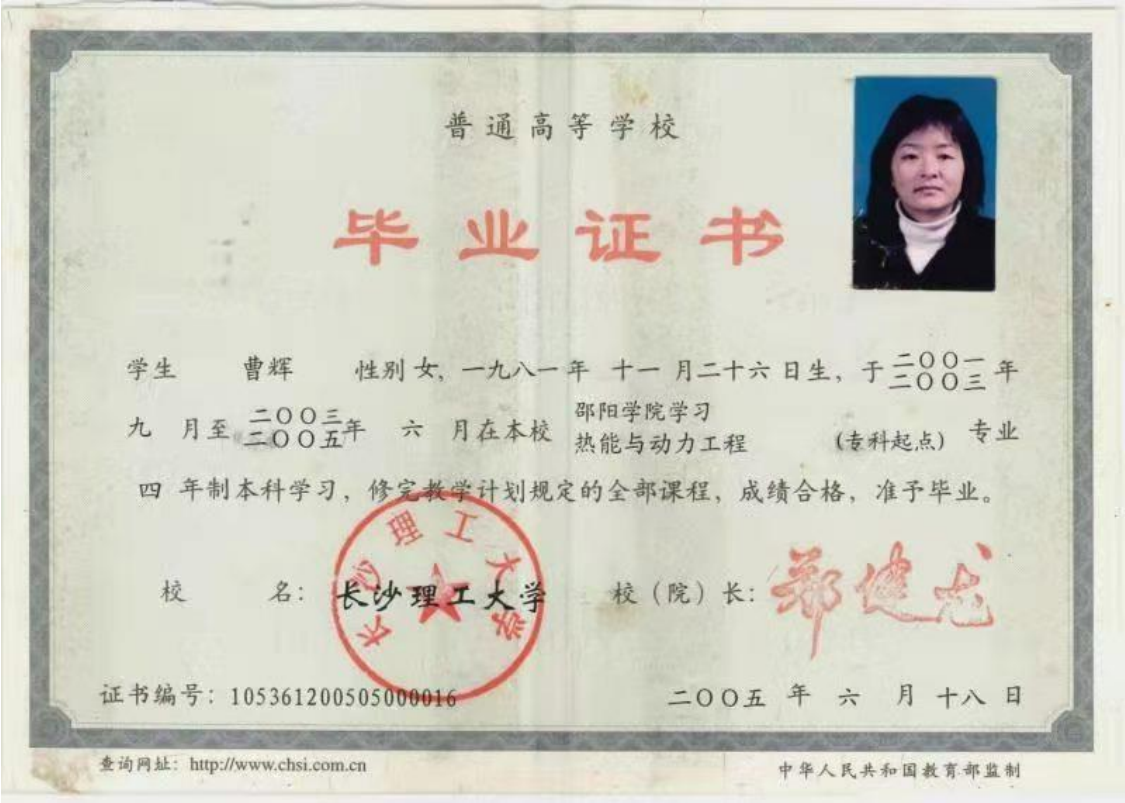 普通高等学校
毕业证书
学生 曹辉 性别 女，一九八一年 十一 月二十六 日生，于 二〇〇一 年
二〇〇三
九 月至 二〇〇三 年 六 月在本校 邵阳学院学习 专业
二〇〇五 热能与动力工程 (专科起点)
四 年制本科学习，修完教学计划规定的全部课程，成绩合格，准予毕业。
长沙理工大学
校 名：长沙理工大学 校（院）长：郑健龙
证书编号：105361200505000016 二〇〇五 年 六 月 十八 日
查询网址：http://www.chsi.com.cn 中华人民共和国教育部监制